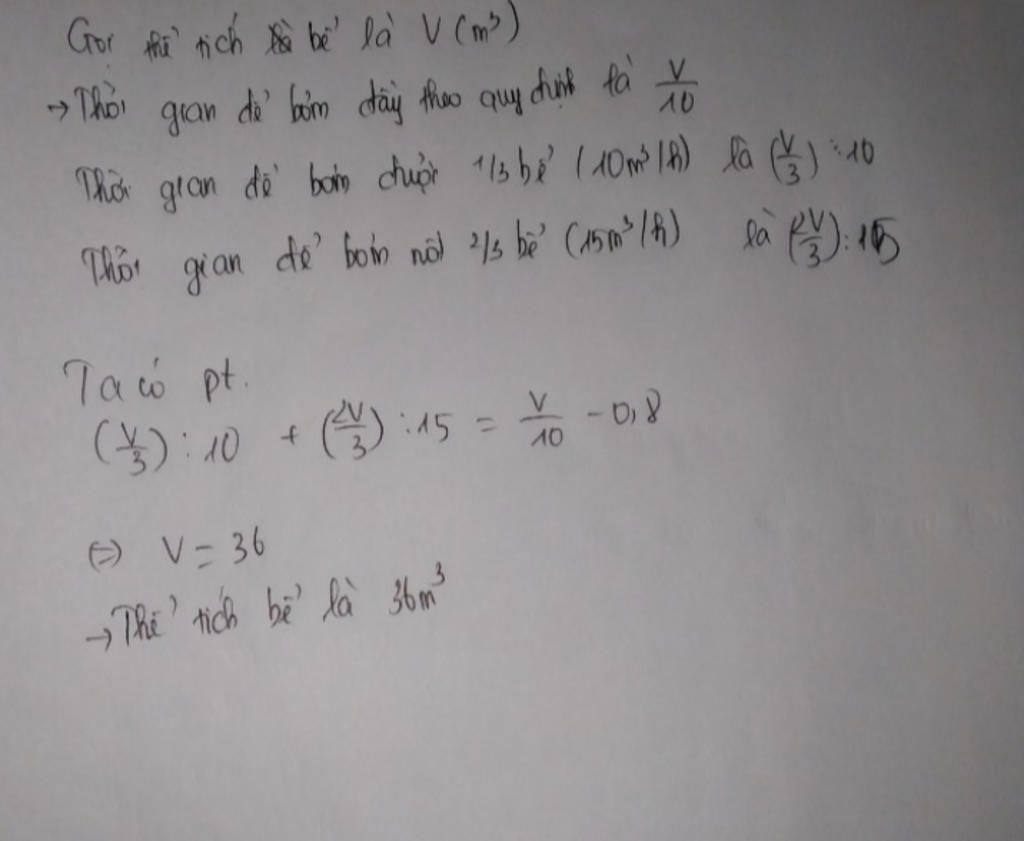 Gọi thể tích bể là V (m³)
→ Thời gian để bơm đầy theo quy định là V/10
Thời gian để bơm được 1/3 bể (10m³/h) là (V/3) : 10
Thời gian để bơm nốt 2/3 bể (15m³/h) là (2V/3) : 15
Ta có pt.
(V/3) : 10 + (2V/3) : 15 = V/10 - 0,8
(=) V = 36
→ Thể tích bể là 36m³